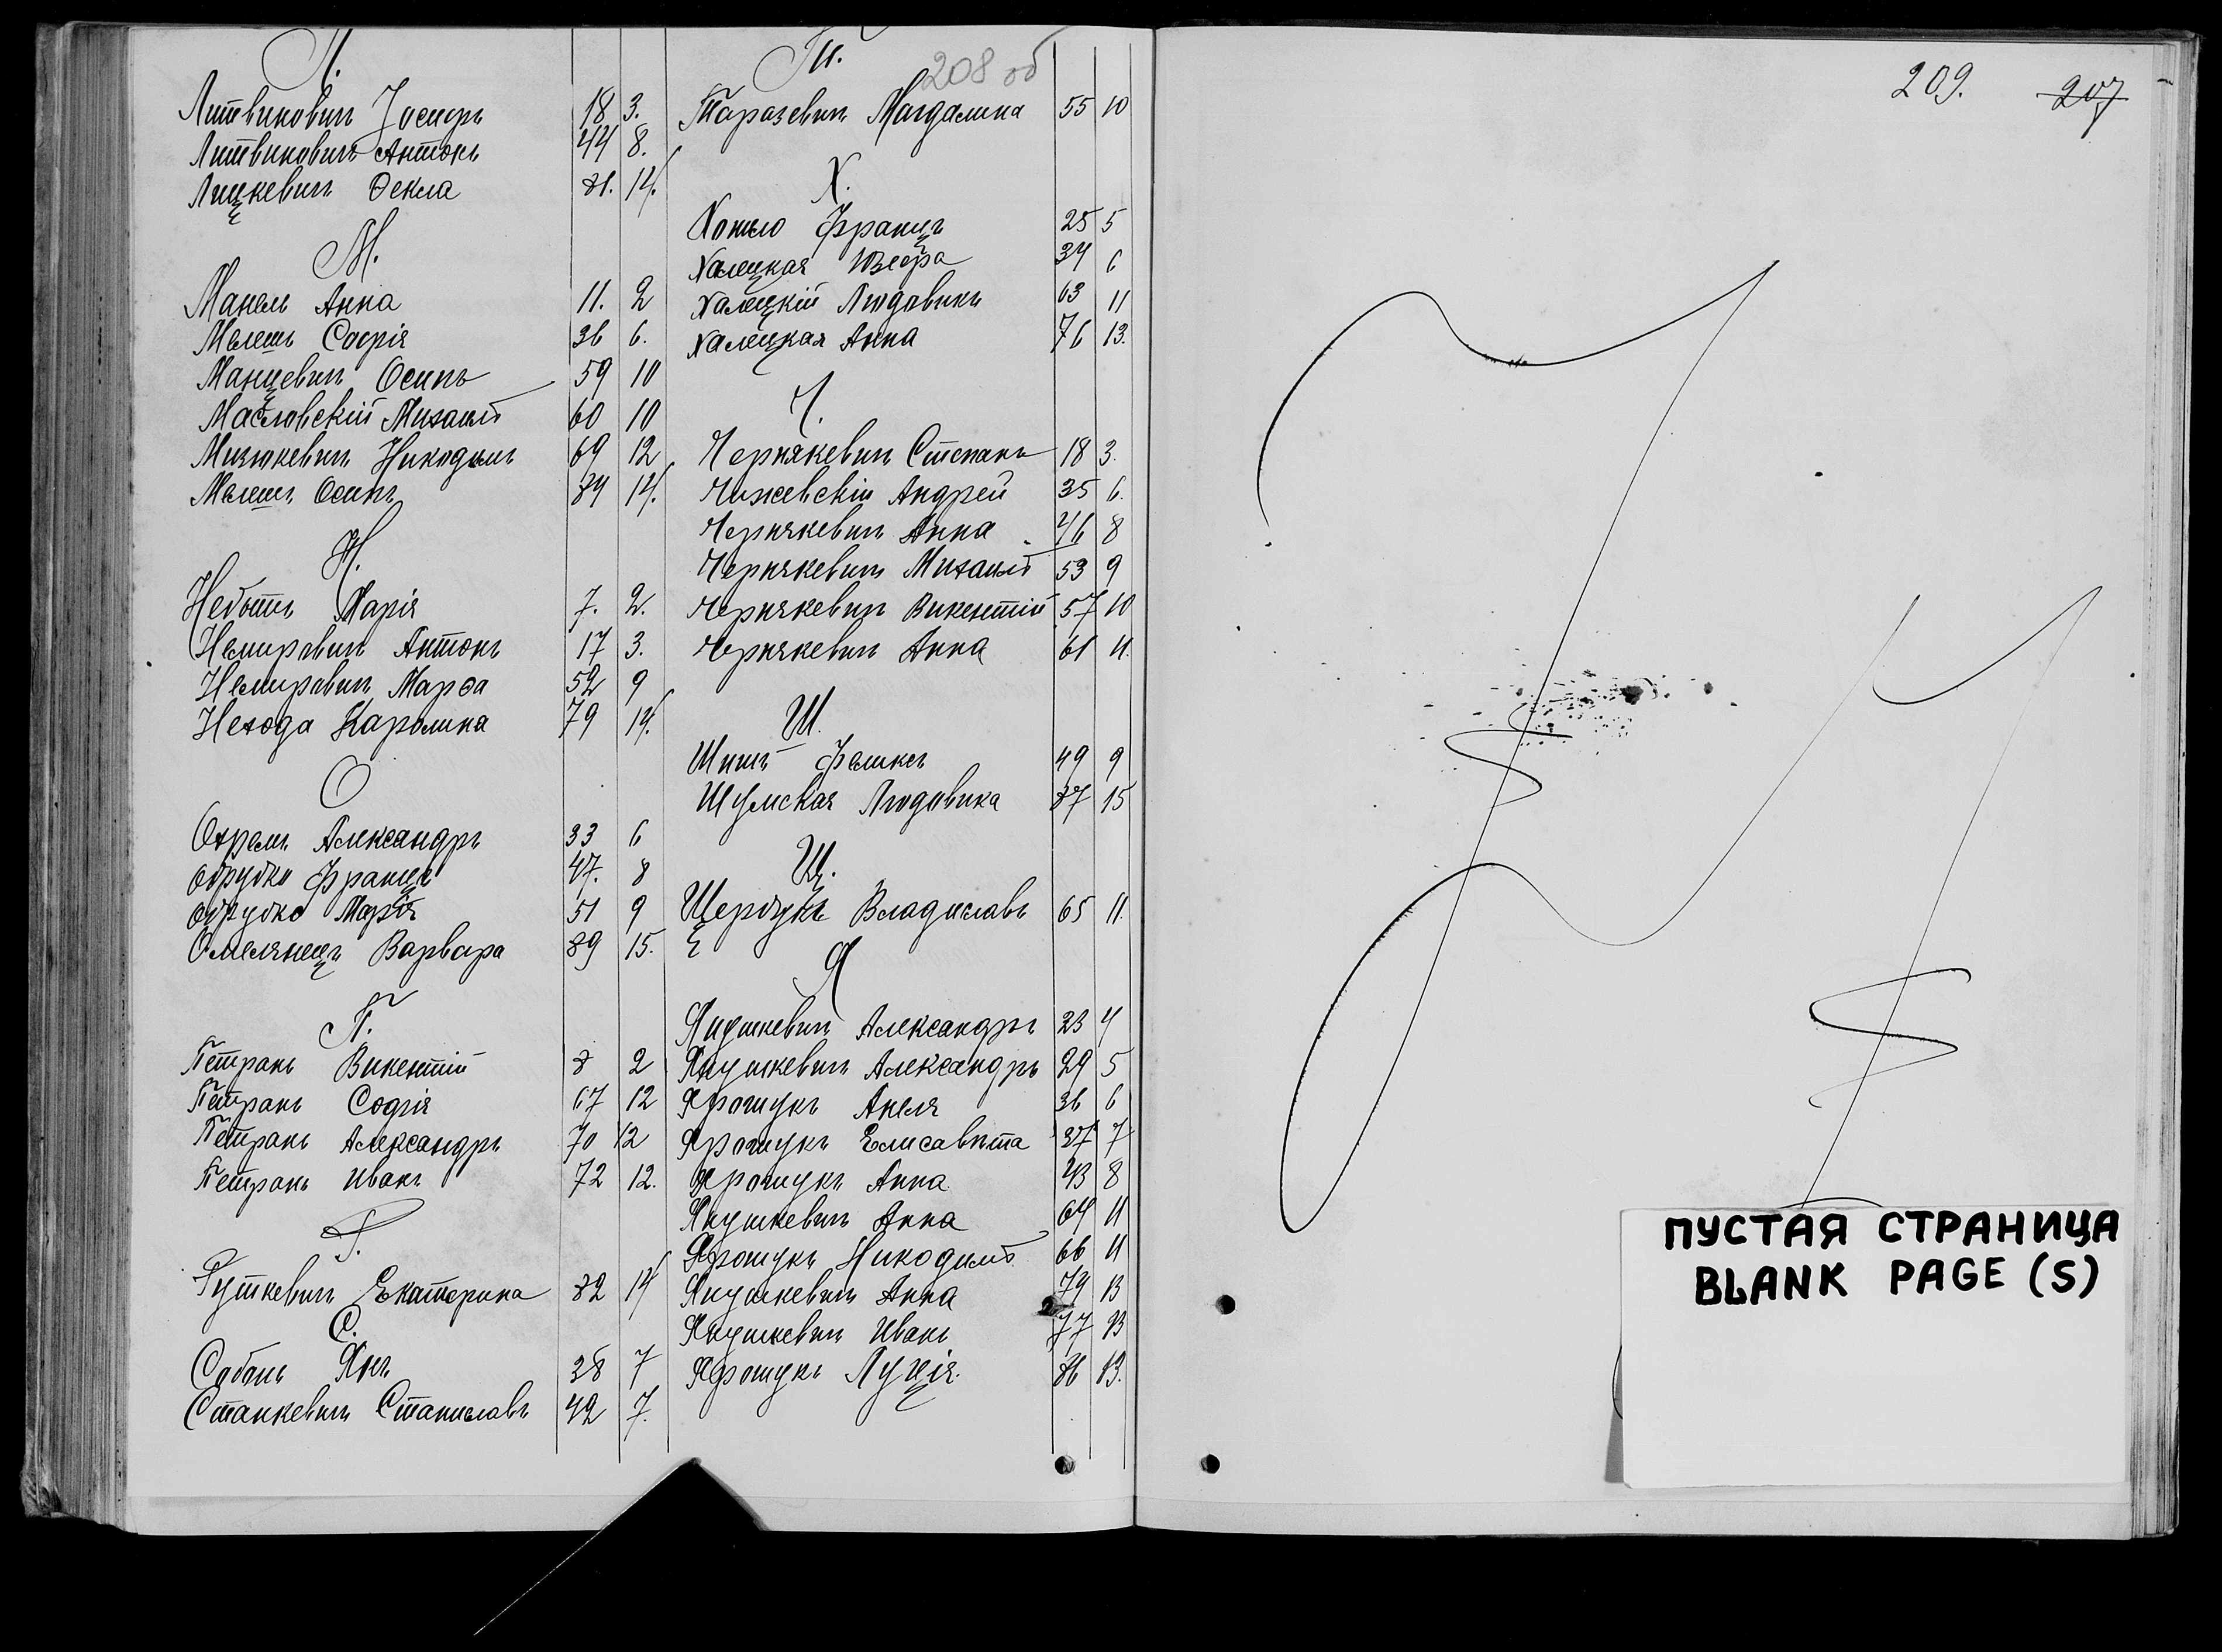 Л.
Литвиновичъ Іосифъ 18 3.
Литвиновичъ Антонъ 44 8.
Лицкевичъ Ѳекла 81. 14.
М.
Манель Анна 11. 2
Мелешъ Софія 36 6.
Манцевичъ Осипъ 59 10
Масловскій Михаилъ 60 10
Мизюкевичъ Никодимъ 69 12
Мелешъ Осипъ 84 14.
Н.
Марія 7. 2.
Немировичъ Антонъ 17 3.
Немировичъ Марѳа 52 9
Нехода Каролина 79 14.
О
Охремъ Александръ 33 6
Обрубко Францъ 47. 8
Обрубко Марія 51 9
Омелянецъ Варвара 89 15.
П.
Петранъ Викентій 8 2
Петранъ Софія 67 12
Петранъ Александръ 70 12
Петранъ Иванъ 72 12.
Р.
Руткевичъ Екатерина 82 14
С.
Янъ 38 7
Станкевичъ Станиславъ 42 7.
Т.
208 об
Таразевичъ Магдалина 55 10
Х.
Францъ 25 5
Халецкая Юзефа 34 6
Халецкій Людовикъ 63 11
Халецкая Анна 76 13.
Ч.
Чернякевичъ Степанъ 18 3.
Чижевскій Андрей 35 6.
Чернякевичъ Анна 46 8
Чернякевичъ Михаилъ 53 9
Чернякевичъ Викентій 57 10
Чернякевичъ Анна 61 11.
Ш.
Шишъ Феликсъ 49 9
Шумская Людовика 87 15
Щ.
Щербукъ Владиславъ 65 11.
Я
Янушкевичъ Александръ 23 4
Янушкевичъ Александръ 29 5
Ярошукъ Анеля 36 6
Ярошукъ Елисавѣта 37 7
Ярошукъ Анна 43 8
Янушкевичъ Анна 64 11
Ярошукъ Никодимъ 66 11
Янушкевичъ Анна 74 13
Янушкевичъ Иванъ 77 13
Ярошукъ Луція. 86 13.
209. 207
ПУСТАЯ СТРАНИЦА
BLANK PAGE (S)